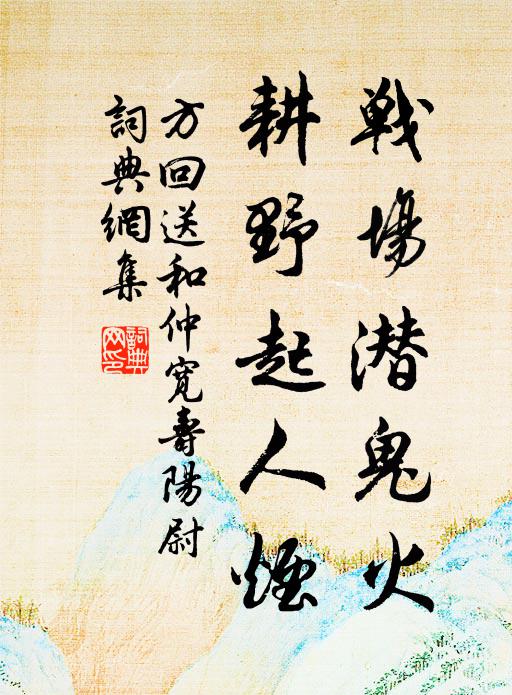 戦場潜鬼火
耕野起人煙
方回送和仲寛壽陽尉
詞典網集
詞典網印